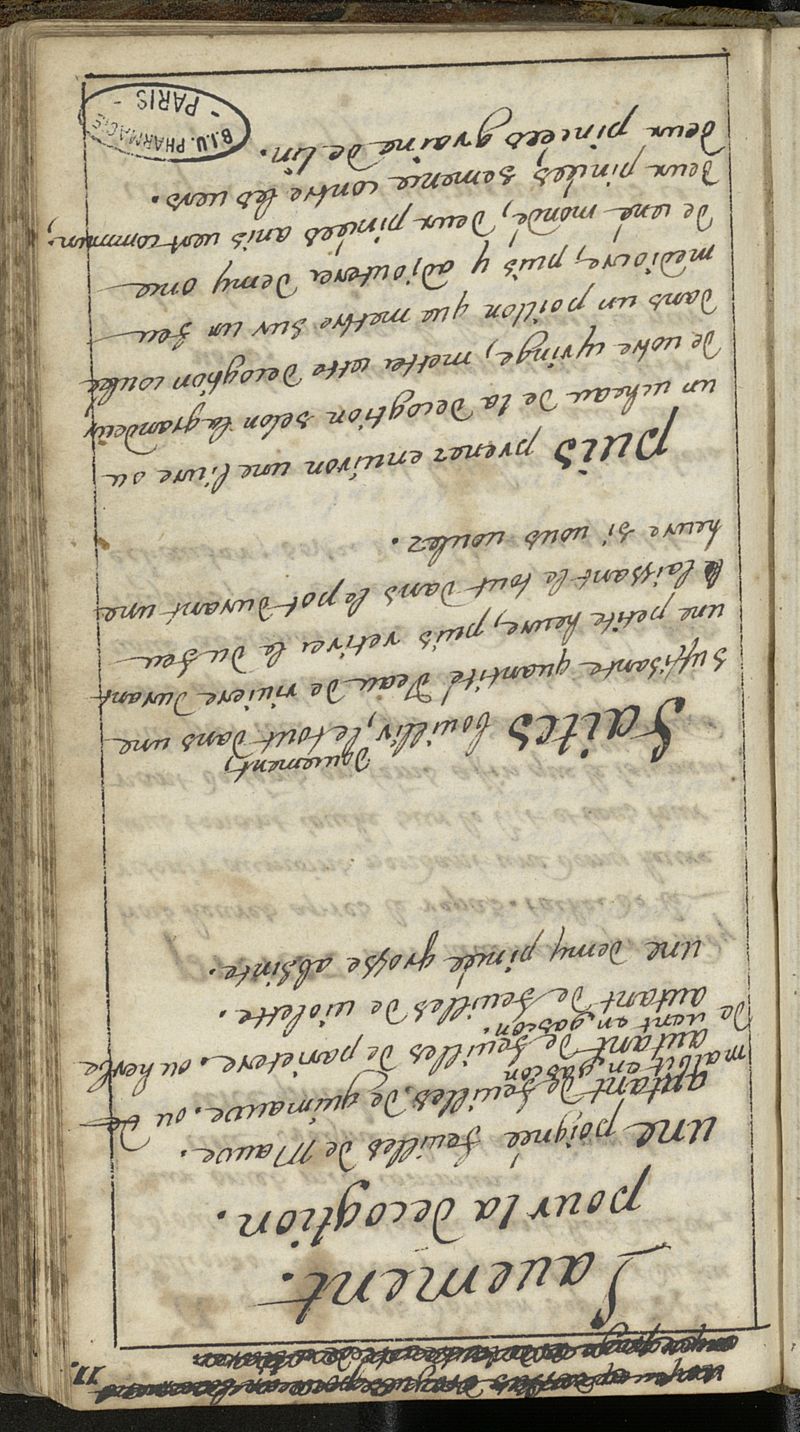 11.
Lauement.
pour la decogtion.
une poignée feuilles de Mauve.
autant de feuilles de guimauve. ou de
malbit en gascon
autant de feuilles de parietere. ou herbe
de uent en gascon.
autant de feuilles de uiolette.
une demy pincée grosse absinte.
faites bouillir, le tout dans une
doucement,
suffisante quantité d'eau de riuiere durant
une petite heure, puis retirer la du feu
laissant le tout dans le pot durant une
heure si uous uoulez.
puis prenez enuiron une liure ou
un ucheau de la decogtion selon la grandeur
de uotre syringe, metter cette decogtion coulée
dans un poillon que mettre sur un feu
mediocre, puis y adjouterer demy once
de sené mondé, deux pincées anis uert commun,
deux pincées semence contre les uers.
deux pincées graine de lin.
B.I.U. PHARMACIE
- PARIS -